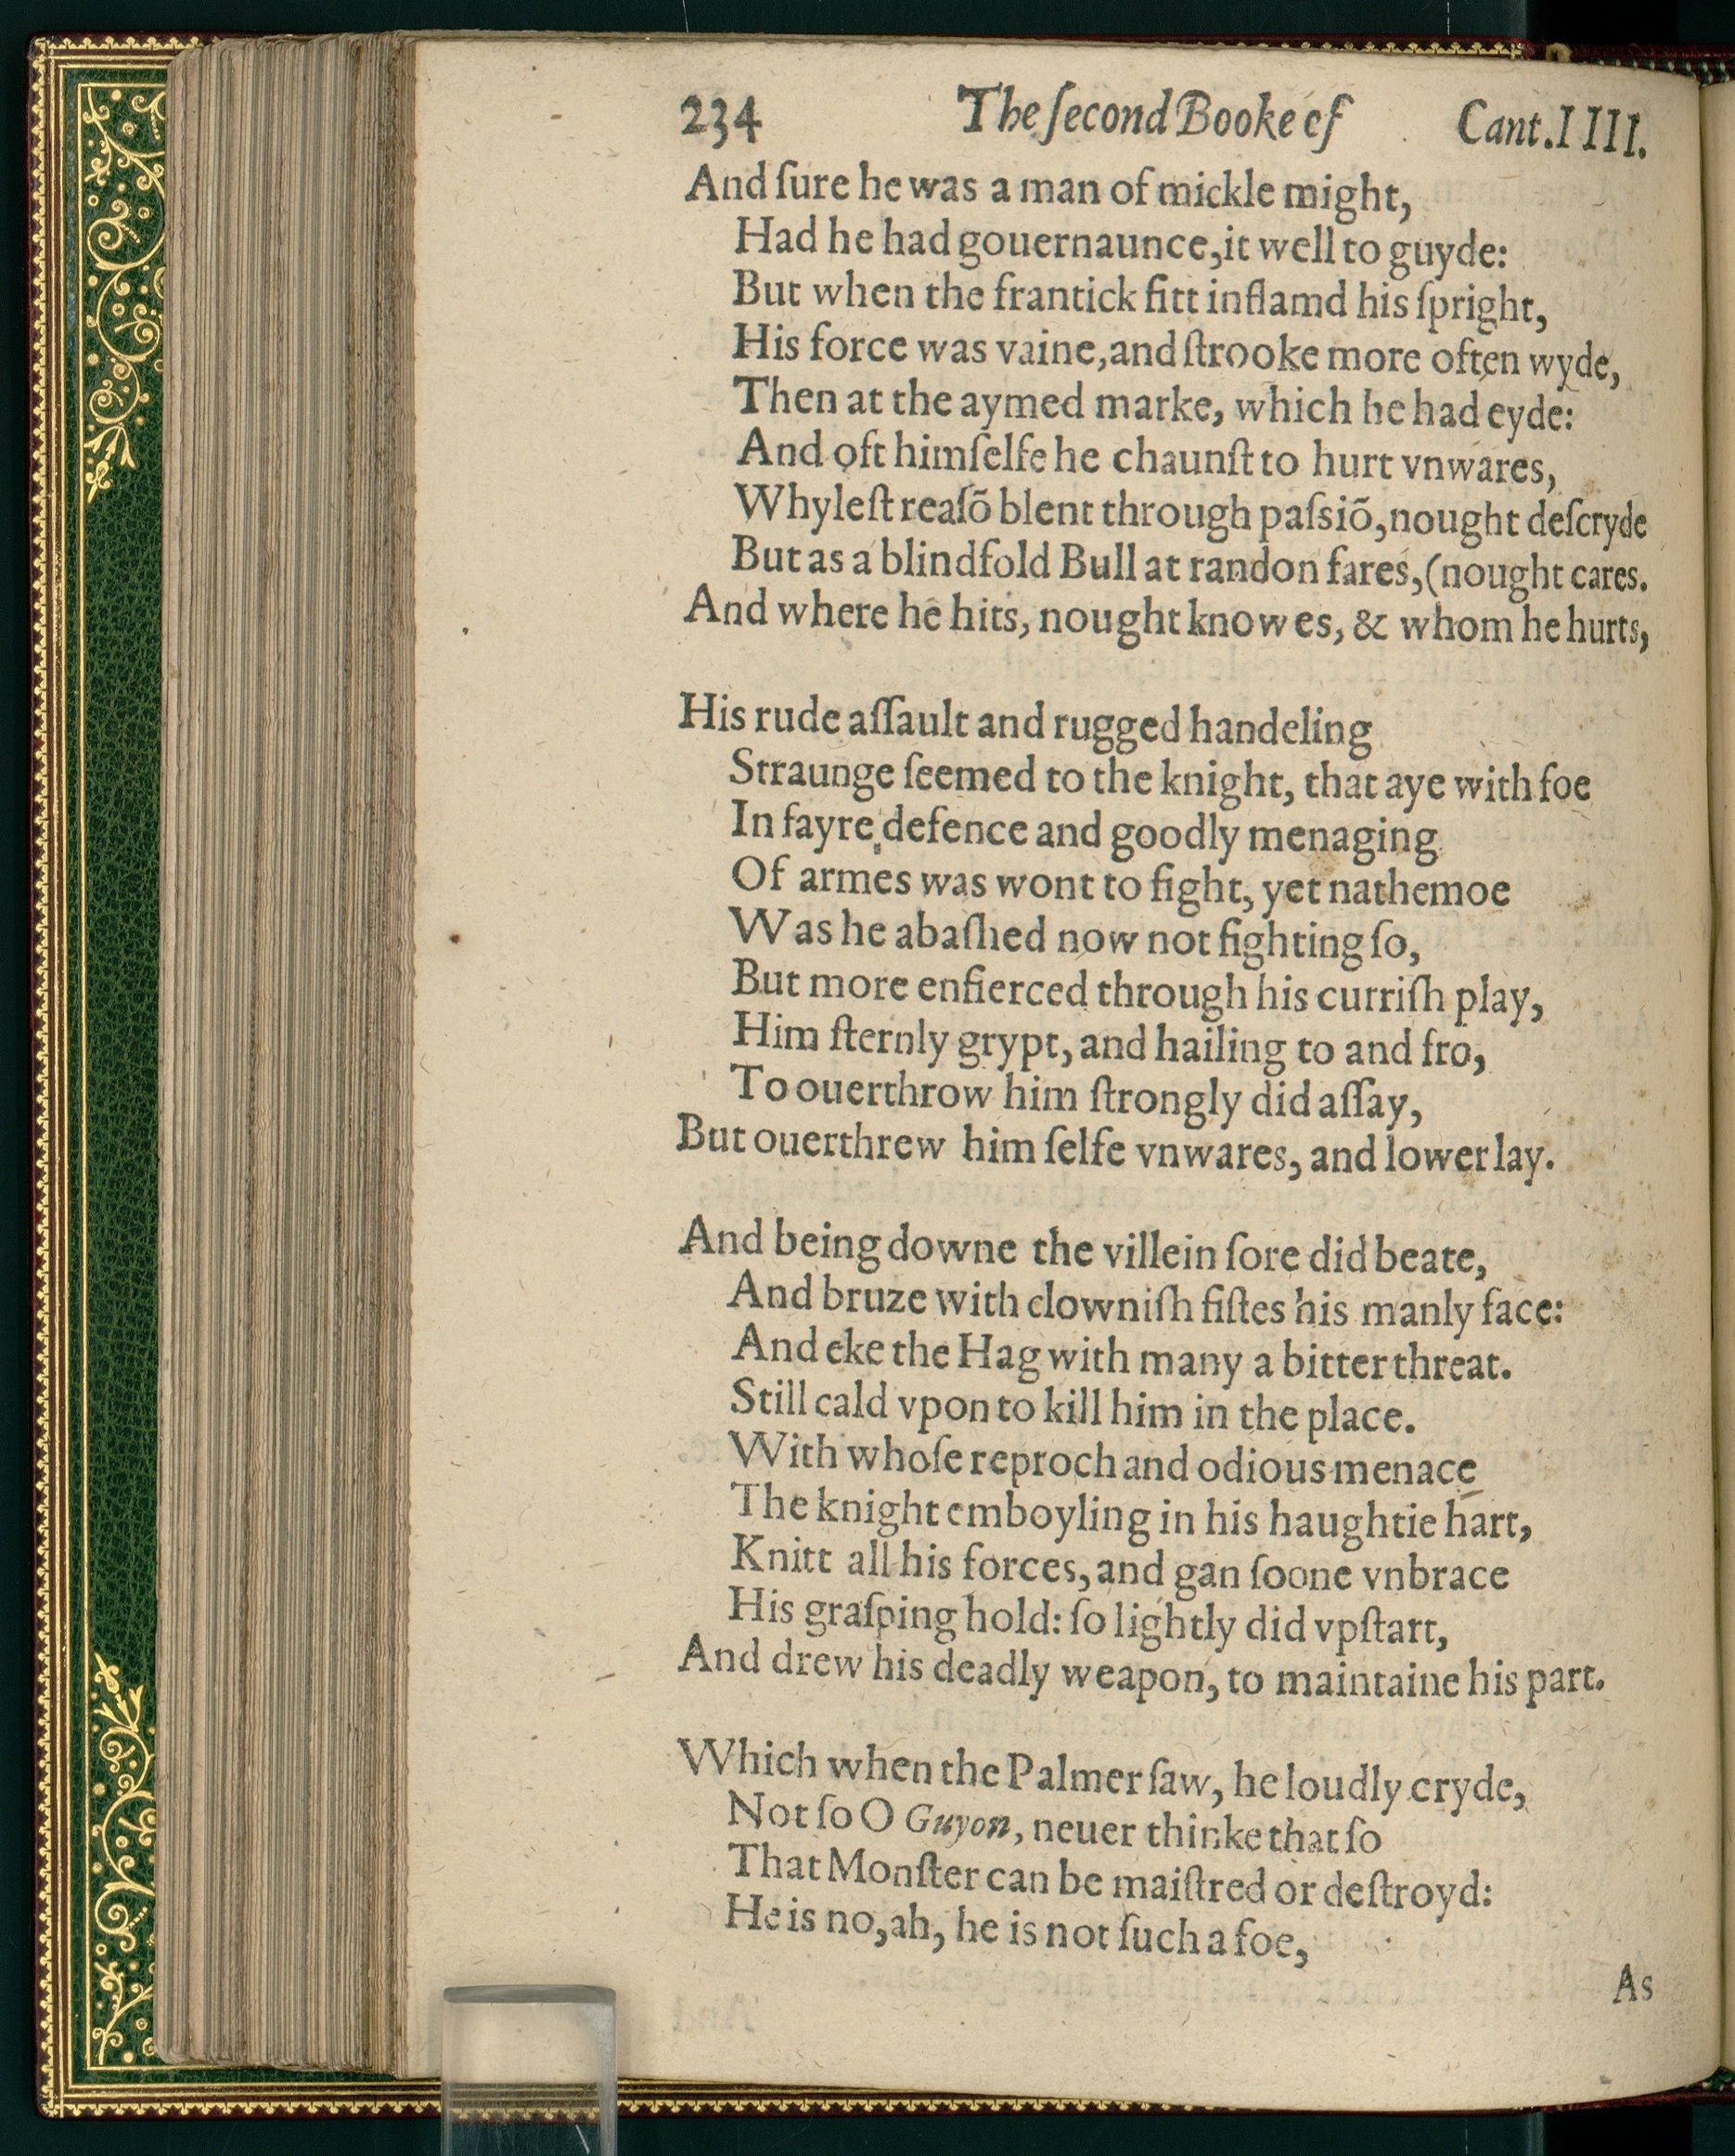 234 The ſecond Booke of Cant.IIII.
And ſure he was a man of mickle might,
Had he had gouernaunce, it well to guyde:
But when the frantick fitt inflamd his ſpright,
His force was vaine, and ſtrooke more often wyde,
Then at the aymed marke, which he had eyde:
And oft himſelfe he chaunſt to hurt vnwares,
Whyleſt reaſõ blent through paſsiõ, nought deſcryde
But as a blindfold Bull at randon fares, (nought cares.
And where he hits, nought knowes, & whom he hurts,
His rude aſſault and rugged handeling
Straunge ſeemed to the knight, that aye with foe
In fayre defence and goodly menaging
Of armes was wont to fight, yet nathemoe
Was he abaſhed now not fighting ſo,
But more enfierced through his curriſh play,
Him ſternly grypt, and hailing to and fro,
To ouerthrow him ſtrongly did aſſay,
But ouerthrew him ſelfe vnwares, and lower lay.
And being downe the villein ſore did beate,
And bruze with clowniſh fiſtes his manly face:
And eke the Hag with many a bitter threat.
Still cald vpon to kill him in the place.
With whoſe reproch and odious menace
The knight emboyling in his haughtie hart,
Knitt all his forces, and gan ſoone vnbrace
His graſping hold: ſo lightly did vpſtart,
And drew his deadly weapon, to maintaine his part.
Which when the Palmer ſaw, he loudly cryde,
Not ſo O Guyon, neuer thinke that ſo
That Monſter can be maiſtred or deſtroyd:
He is no, ah, he is not ſuch a foe,
As